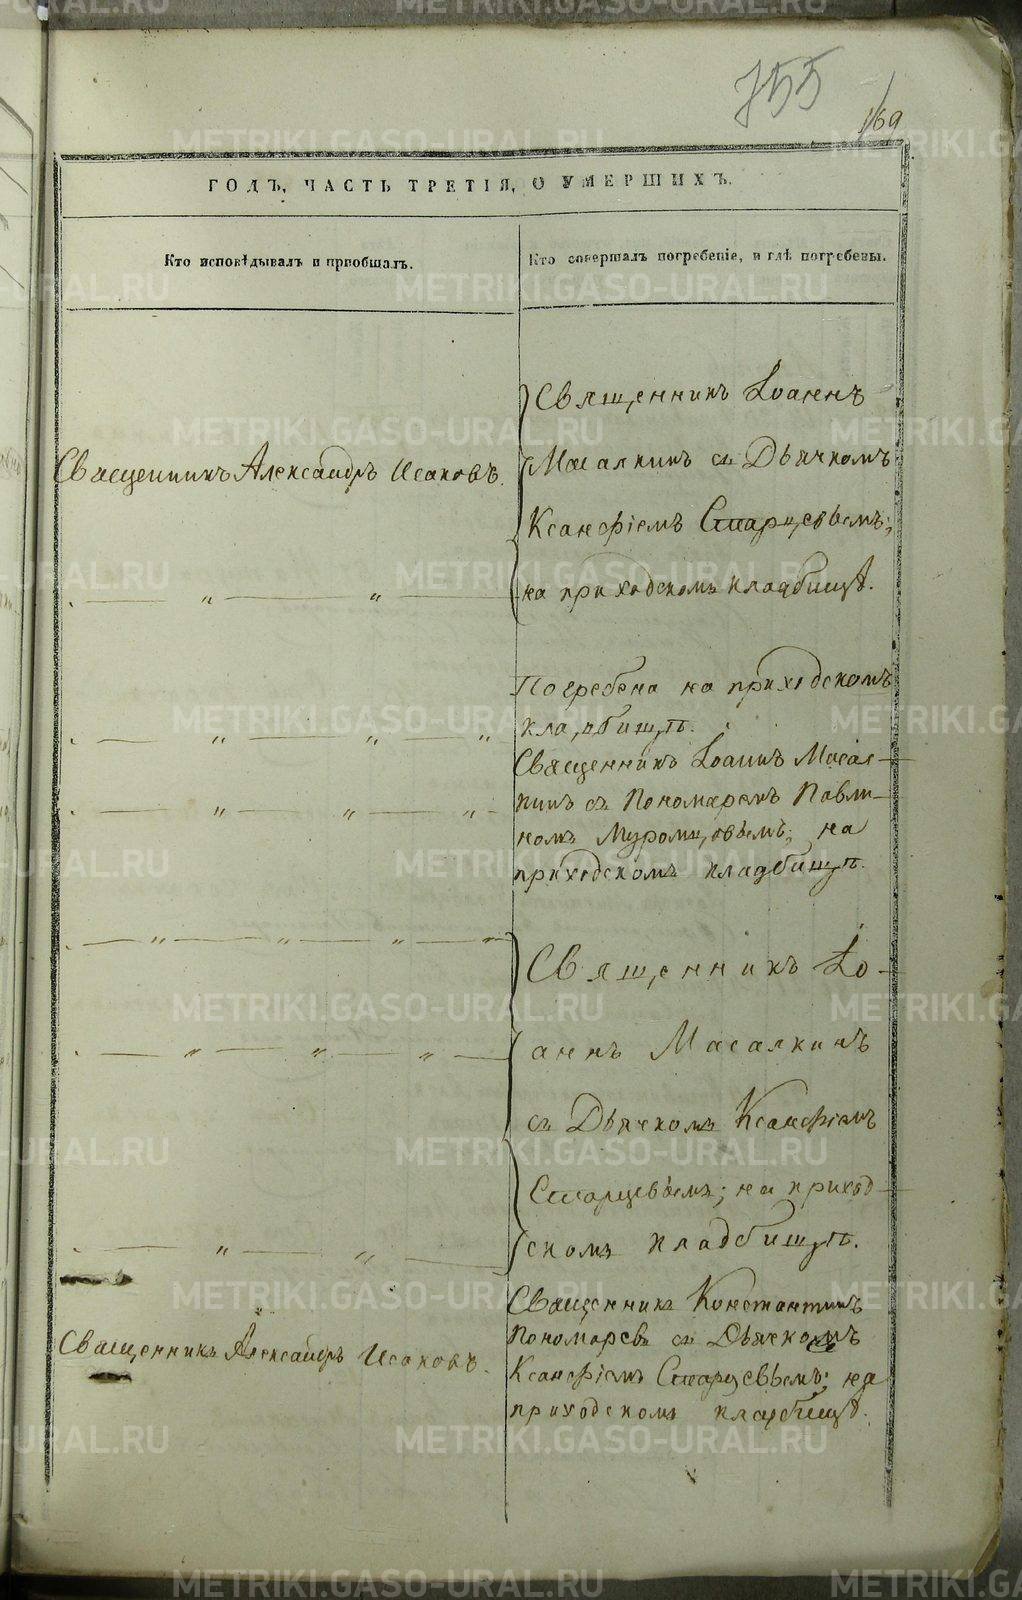 755
169
ГОДЪ, ЧАСТЬ ТРЕТІЯ, О УМЕРШИХЪ.
Кто исповѣдывалъ и пріобщалъ.
Кто совершалъ погребеніе, и гдѣ погребены.
Священникъ Іоаннъ
Священникъ Александръ Исаковъ.
Масалкинъ съ Дьячкомъ
Ксанфіемъ Старцевымъ;
на приходскомъ кладбищѣ.
— " — " —
Погребена на приходскомъ
кладбищѣ.
— " — " — "
Священникъ Іоаннъ Масал-
кинъ съ Пономаремъ Павли-
— " — " — "
номъ Муромцовымъ; на
приходскомъ кладбищѣ.
— " — " — " — "
Священникъ Іо-
аннъ Масалкинъ
— " — " — " —
съ Дьячкомъ Ксанфіемъ
Старцевымъ; на приход-
скомъ кладбищѣ.
— " — " —
Священникъ Константинъ
Пономаревъ съ Дьячкомъ
Священникъ Александръ Исаковъ.
Ксанфіемъ Старцевымъ; на
приходскомъ кладбищѣ.
METRIKI.GASO-URAL.RU